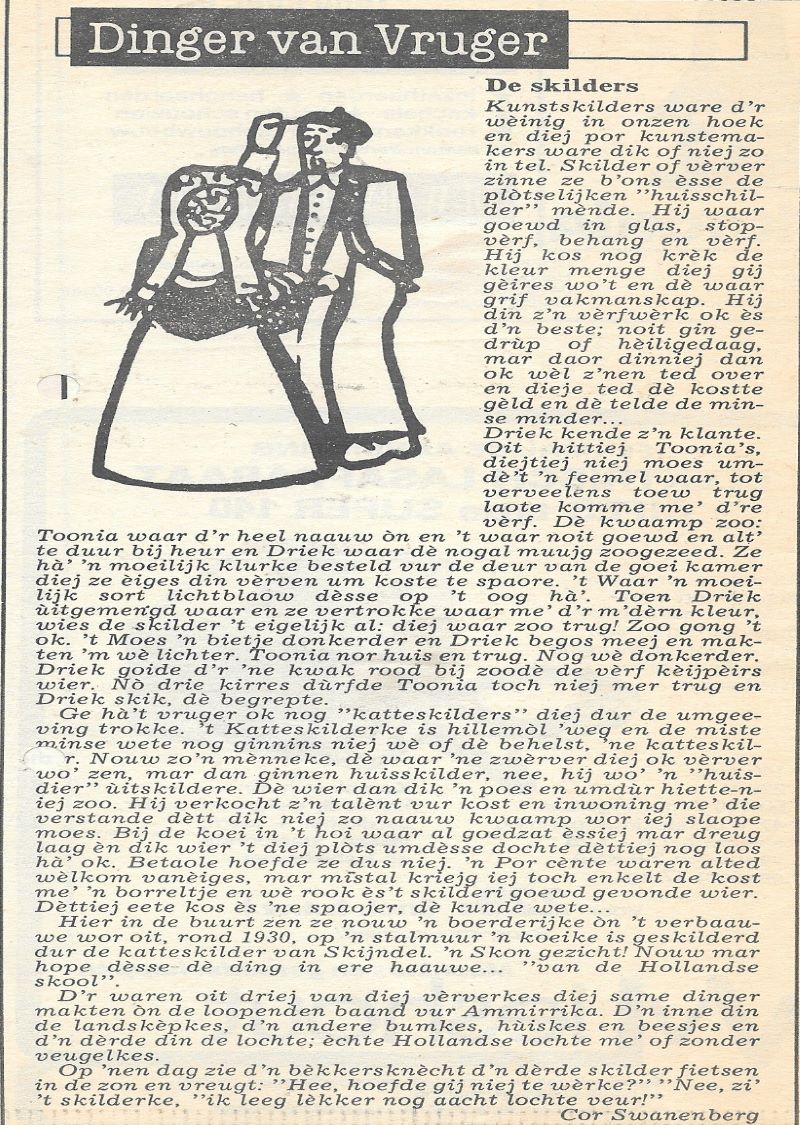 Dinger van Vruger
De skilders
Kunstskilders ware d'r
wèinig in onzen hoek
en diej por kunstema-
kers ware dik of niej zo
in tel. Skilder of vèrver
zinne ze b'ons èsse de
plòtselijken "huisschil-
der" mènde. Hij waar
goewd in glas, stop-
vèrf, behang en vèrf.
Hij kos nog krèk de
kleur menge diej gij
gèires wo't en dè waar
grif vakmanskap. Hij
din z'n vèrfwèrk ok ès
d'n beste; noit gin ge-
drùp of hèiligedaag,
mar daor dinniej dan
ok wèl z'nen ted over
en dieje ted dè kostte
gèld en dè telde de min-
se minder...
Driek kende z'n klante.
Oit hittiej Toonia's,
diejtiej niej moes um-
dè't 'n feemel waar, tot
verveelens toew trug
laote komme me' d're
vèrf. Dè kwaamp zoo:
Toonia waar d'r heel naauw òn en 't waar noit goewd en alt'
te duur bij heur en Driek waar dè nogal muujg zoogezeed. Ze
hà' 'n moeilijk klurke besteld vur de deur van de goei kamer
diej ze èiges din vèrven um koste te spaore. 't Waar 'n moei-
lijk sort lichtblaow dèsse op 't oog hà'. Toen Driek
ùitgemengd waar en ze vertrokke waar me' d'r m'dèrn kleur,
wies de skilder 't eigelijk al: diej waar zoo trug! Zoo gong 't
ok. 't Moes 'n bietje donkerder en Driek begos meej en mak-
ten 'm wè lichter. Toonia nor huis en trug. Nog wè donkerder.
Driek goide d'r 'ne kwak rood bij zoodè de vèrf kèijpèirs
wier. Nò drie kirres dùrfde Toonia toch niej mer trug en
Driek skik, dè begrepte.
Ge hà't vruger ok nog "katteskilders" diej dur de umgee-
ving trokke. 't Katteskilderke is hillemòl 'weg en de miste
minse wete nog ginnins niej wè of dè behelst, 'ne katteskil-
r. Nouw zo'n mènneke, dè waar 'ne zwèrver diej ok vèrver
wo' zen, mar dan ginnen huisskilder, nee, hij wo' 'n "huis-
dier" ùitskildere. Dè wier dan dik 'n poes en umdùr hiette-n-
iej zoo. Hij verkocht z'n talènt vur kost en inwoning me' die
verstande dètt dik niej zo naauw kwaamp wor iej slaope
moes. Bij de koei in 't hoi waar al goedzat èssiej mar dreug
laag èn dik wier 't diej plòts umdèsse dochte dèttiej nog laos
hà' ok. Betaole hoefde ze dus niej. 'n Por cènte waren alted
wèlkom vanèiges, mar mistal kriejg iej toch enkelt de kost
me' 'n borreltje en wè rook ès't skilderi goewd gevonde wier.
Dèttiej eete kos ès 'ne spaojer, dè kunde wete...
Hier in de buurt zen ze nouw 'n boerderijke òn 't verbaau-
we wor oit, rond 1930, op 'n stalmuur 'n koeike is geskilderd
dur de katteskilder van Skijndel. 'n Skon gezicht! Nouw mar
hope dèsse dè ding in ere haauwe... "van de Hollandse
skool".
D'r waren oit driej van diej vèrverkes diej same dinger
makten òn de loopenden baand vur Ammirrika. D'n inne din
de landskèpkes, d'n andere bumkes, hùiskes en beesjes en
d'n dèrde din de lochte; èchte Hollandse lochte me' of zonder
veugelkes.
Op 'nen dag zie d'n bèkkersknècht d'n dèrde skilder fietsen
in de zon en vreugt: "Hee, hoefde gij niej te wèrke?" "Nee, zi'
't skilderke, "ik leeg lèkker nog aacht lochte veur!"
Cor Swanenberg